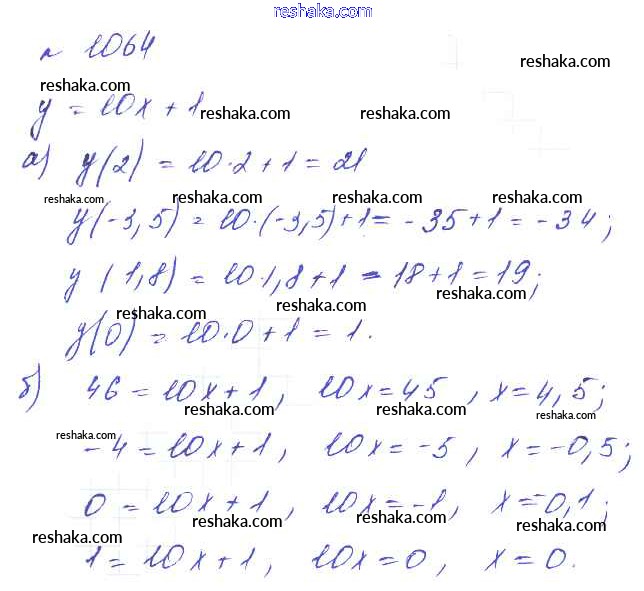 reshaka.com
н 1064
reshaka.com reshaka.com
y = 10x + 1 reshaka.com reshaka.com
а) y(2) = 10·2+1=21
reshaka.com reshaka.com reshaka.com reshaka.com
y(-3,5) = 10·(-3,5)+1= -35+1=-34;
y(1,8) = 10·1,8+1 = 18+1=19;
reshaka.com reshaka.com reshaka.com
y(0) = 10·0+1=1.
reshaka.com reshaka.com
б) 46=10x+1, 10x=45, x=4,5;
reshaka.com reshaka.com reshaka.com
-4=10x+1, 10x=-5, x=-0,5;
reshaka.com reshaka.com
0=10x+1, 10x=-1, x=-0,1;
reshaka.com reshaka.com reshaka.com
1=10x+1, 10x=0, x=0.
reshaka.com reshaka.com